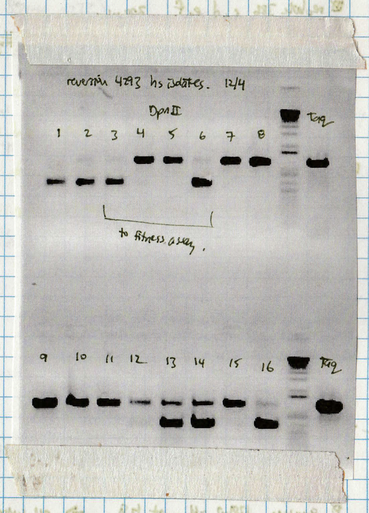 reversion 4293 hs isolates. 12/4
DpnII
1 2 3 4 5 6 7 8 Taq
to fitness assay.
9 10 11 12 13 14 15 16 Taq